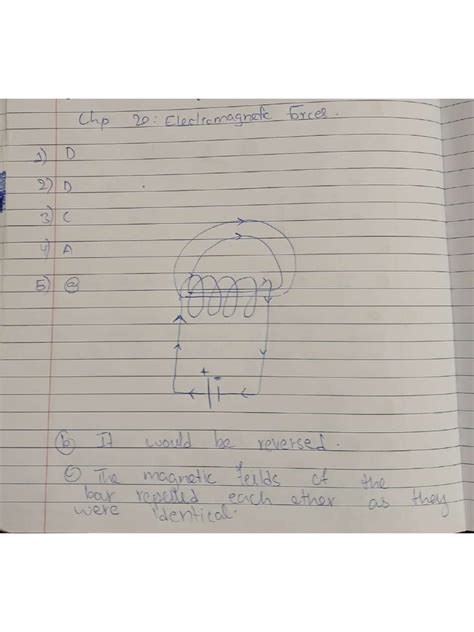 Chp 20: Electromagnetic forces.
1) D
2) D
3) C
4) A
5) a
+ -
b It would be reversed.
c The magnetic feilds of the
bar repelled each other as they
were identical.